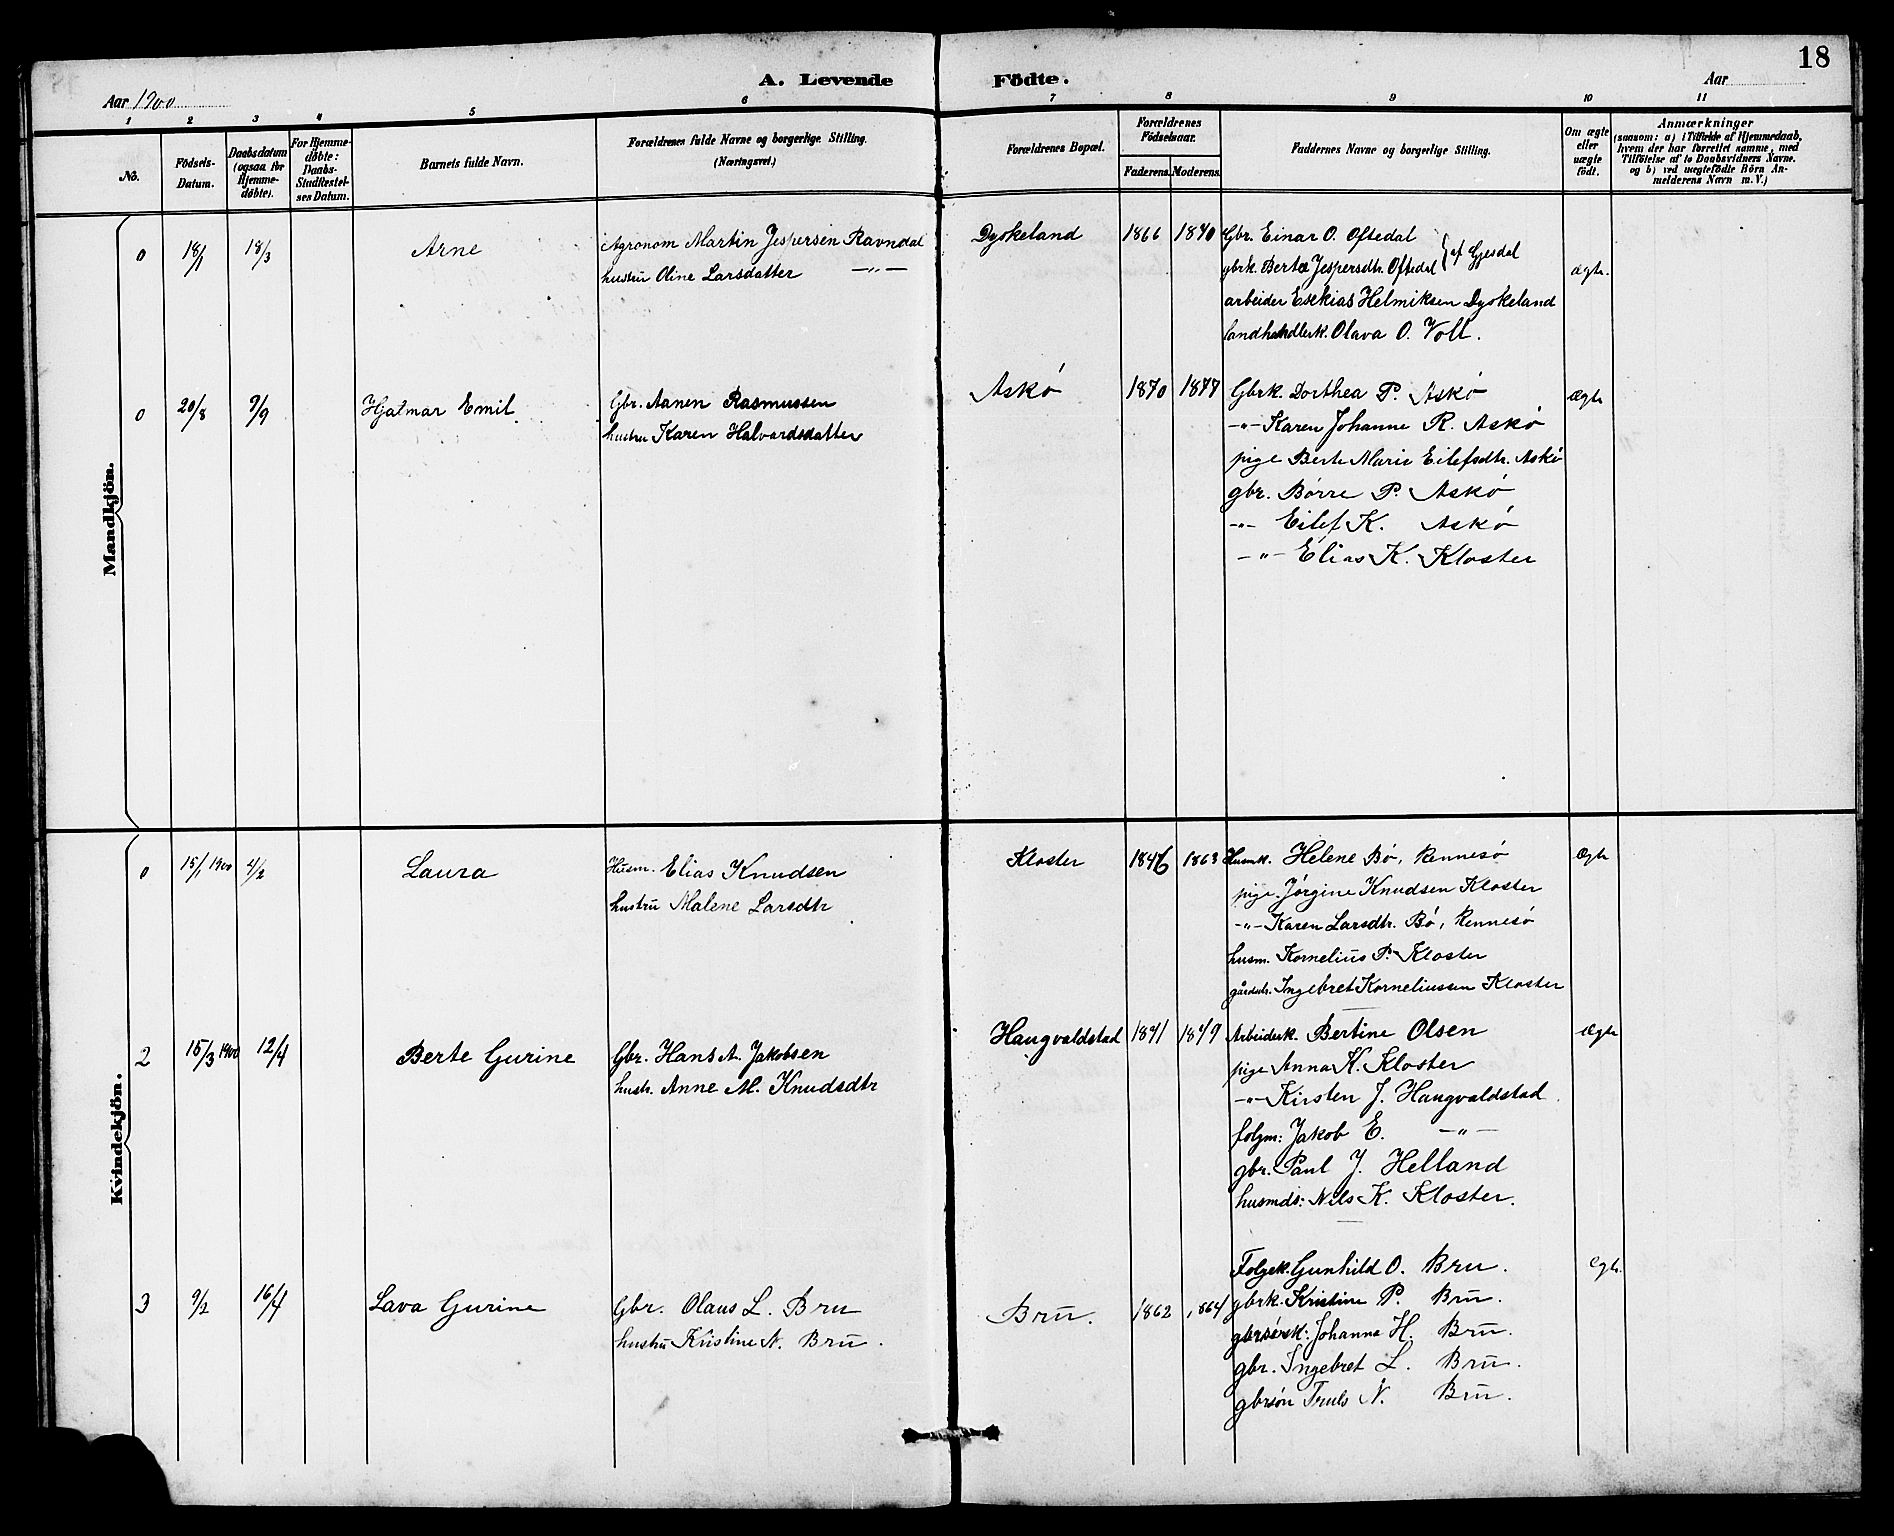 18
A. Levende Födte.
Aar 1900
Aar
1 2 3 4 5 6 7 8 9 10 11
No.
Födsels-Datum.
Daabsdatum (ogsaa for Hjemme-døbte).
For Hjemme-døbte: Daabs-Stadfæstel-ses Datum.
Barnets fulde Navn.
Forældrenes fulde Navne og borgerlige Stilling. (Næringsvei.)
Forældrenes Bopæl.
Forældrenes Födselsaar.
Faderens. Moderens.
Faddernes Navne og borgerlige Stilling.
Om ægte eller uægte født.
Anmærkninger
(saasom: a) i Tilfælde af Hjemmedaab,
hvem der har forrettet samme, med
Tilföielse af to Daabsvidners Navne.
og b) ved uægtefödte Börn An-
melderens Navn m. V.)
Mandkjön.
0 18/1 18/3 Arne
Agronom Martin Jespersen Ravndal
hustru Oline Larsdatter —"—
Dyskeland 1866 1870
Gbr. Einar O. Oftedal
gbrk. Berte Jespersdtr. Oftedal } af Gjesdal
arbeider Esekias Helmiksen Dyskeland
landhandlerk. Olava O. Voll.
ægte.
0 20/8 9/9 Hjalmar Emil.
Gbr. Aanen Rasmussen
hustru Karen Halvardsdatter
Askø 1870 1877
Gbrk. Dorthea P. Askø
-"- Karen Johanne R. Askø
pige Berte Marie Eilefsdtr. Askø
gbr. Børre P. Askø
-"- Eilef K. Askø
-"- Elias K. Kloster
Ægte
Kvindekjön.
0 15/1 1900 4/2 Laura
Husm. Elias Knudsen
hustru Malene Larsdtr
Kloster 1846 1863
Husmk. Helene Bø, Rennesø
pige Jørgine Knudsen Kloster
-"- Karen Larsdtr. Bø, Rennesø
husm. Kornelius P. Kloster
gårdstr. Ingebret Korneliussen Kloster
Ægte
2 15/3 1900 12/4 Berte Gurine
Gbr. Hans A. Jakobsen
hustr. Anne M. Knudsdtr
Haugvaldstad 1841 1849
Arbeiderk. Bertine Olsen
pige Anna K. Kloster
-"- Kirsten J. Haugvaldstad.
folgm: Jakob E. —"—
gbr. Paul J. Helland
husmds: Nils K. Kloster.
Ægte
3 9/2 16/4 Lava Gurine
Gbr. Olaus L. Bru
hustru Kristine N. Bru.
Bru. 1862 1864
Folgek. Gunhild O. Bru.
gbrk. Kristine P. Bru.
gbrsörsk: Johanna H. Bru.
gbr. Ingebret L. Bru.
gbrsön Truls N. Bru.
Egte.